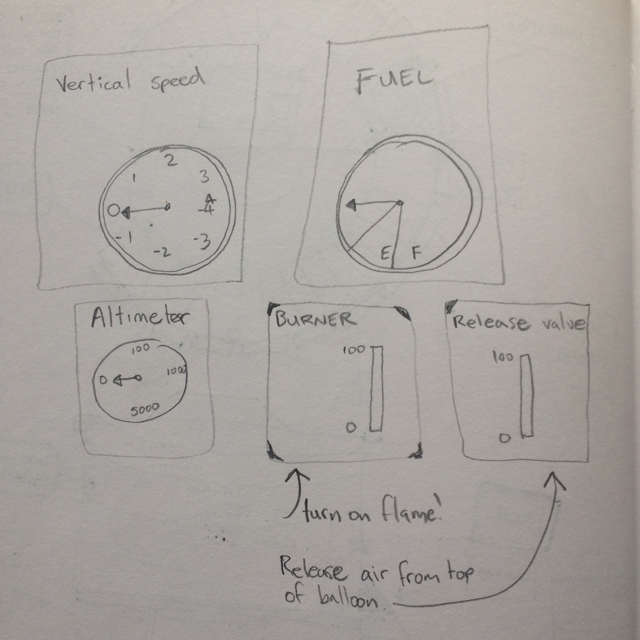 Vertical speed
2
1 3
0 4
-1 -3
-2
FUEL
E F
Altimeter
100
0 1000
5000
BURNER
100
0
Release valve
100
0
turn on flame!
Release air from top
of balloon.